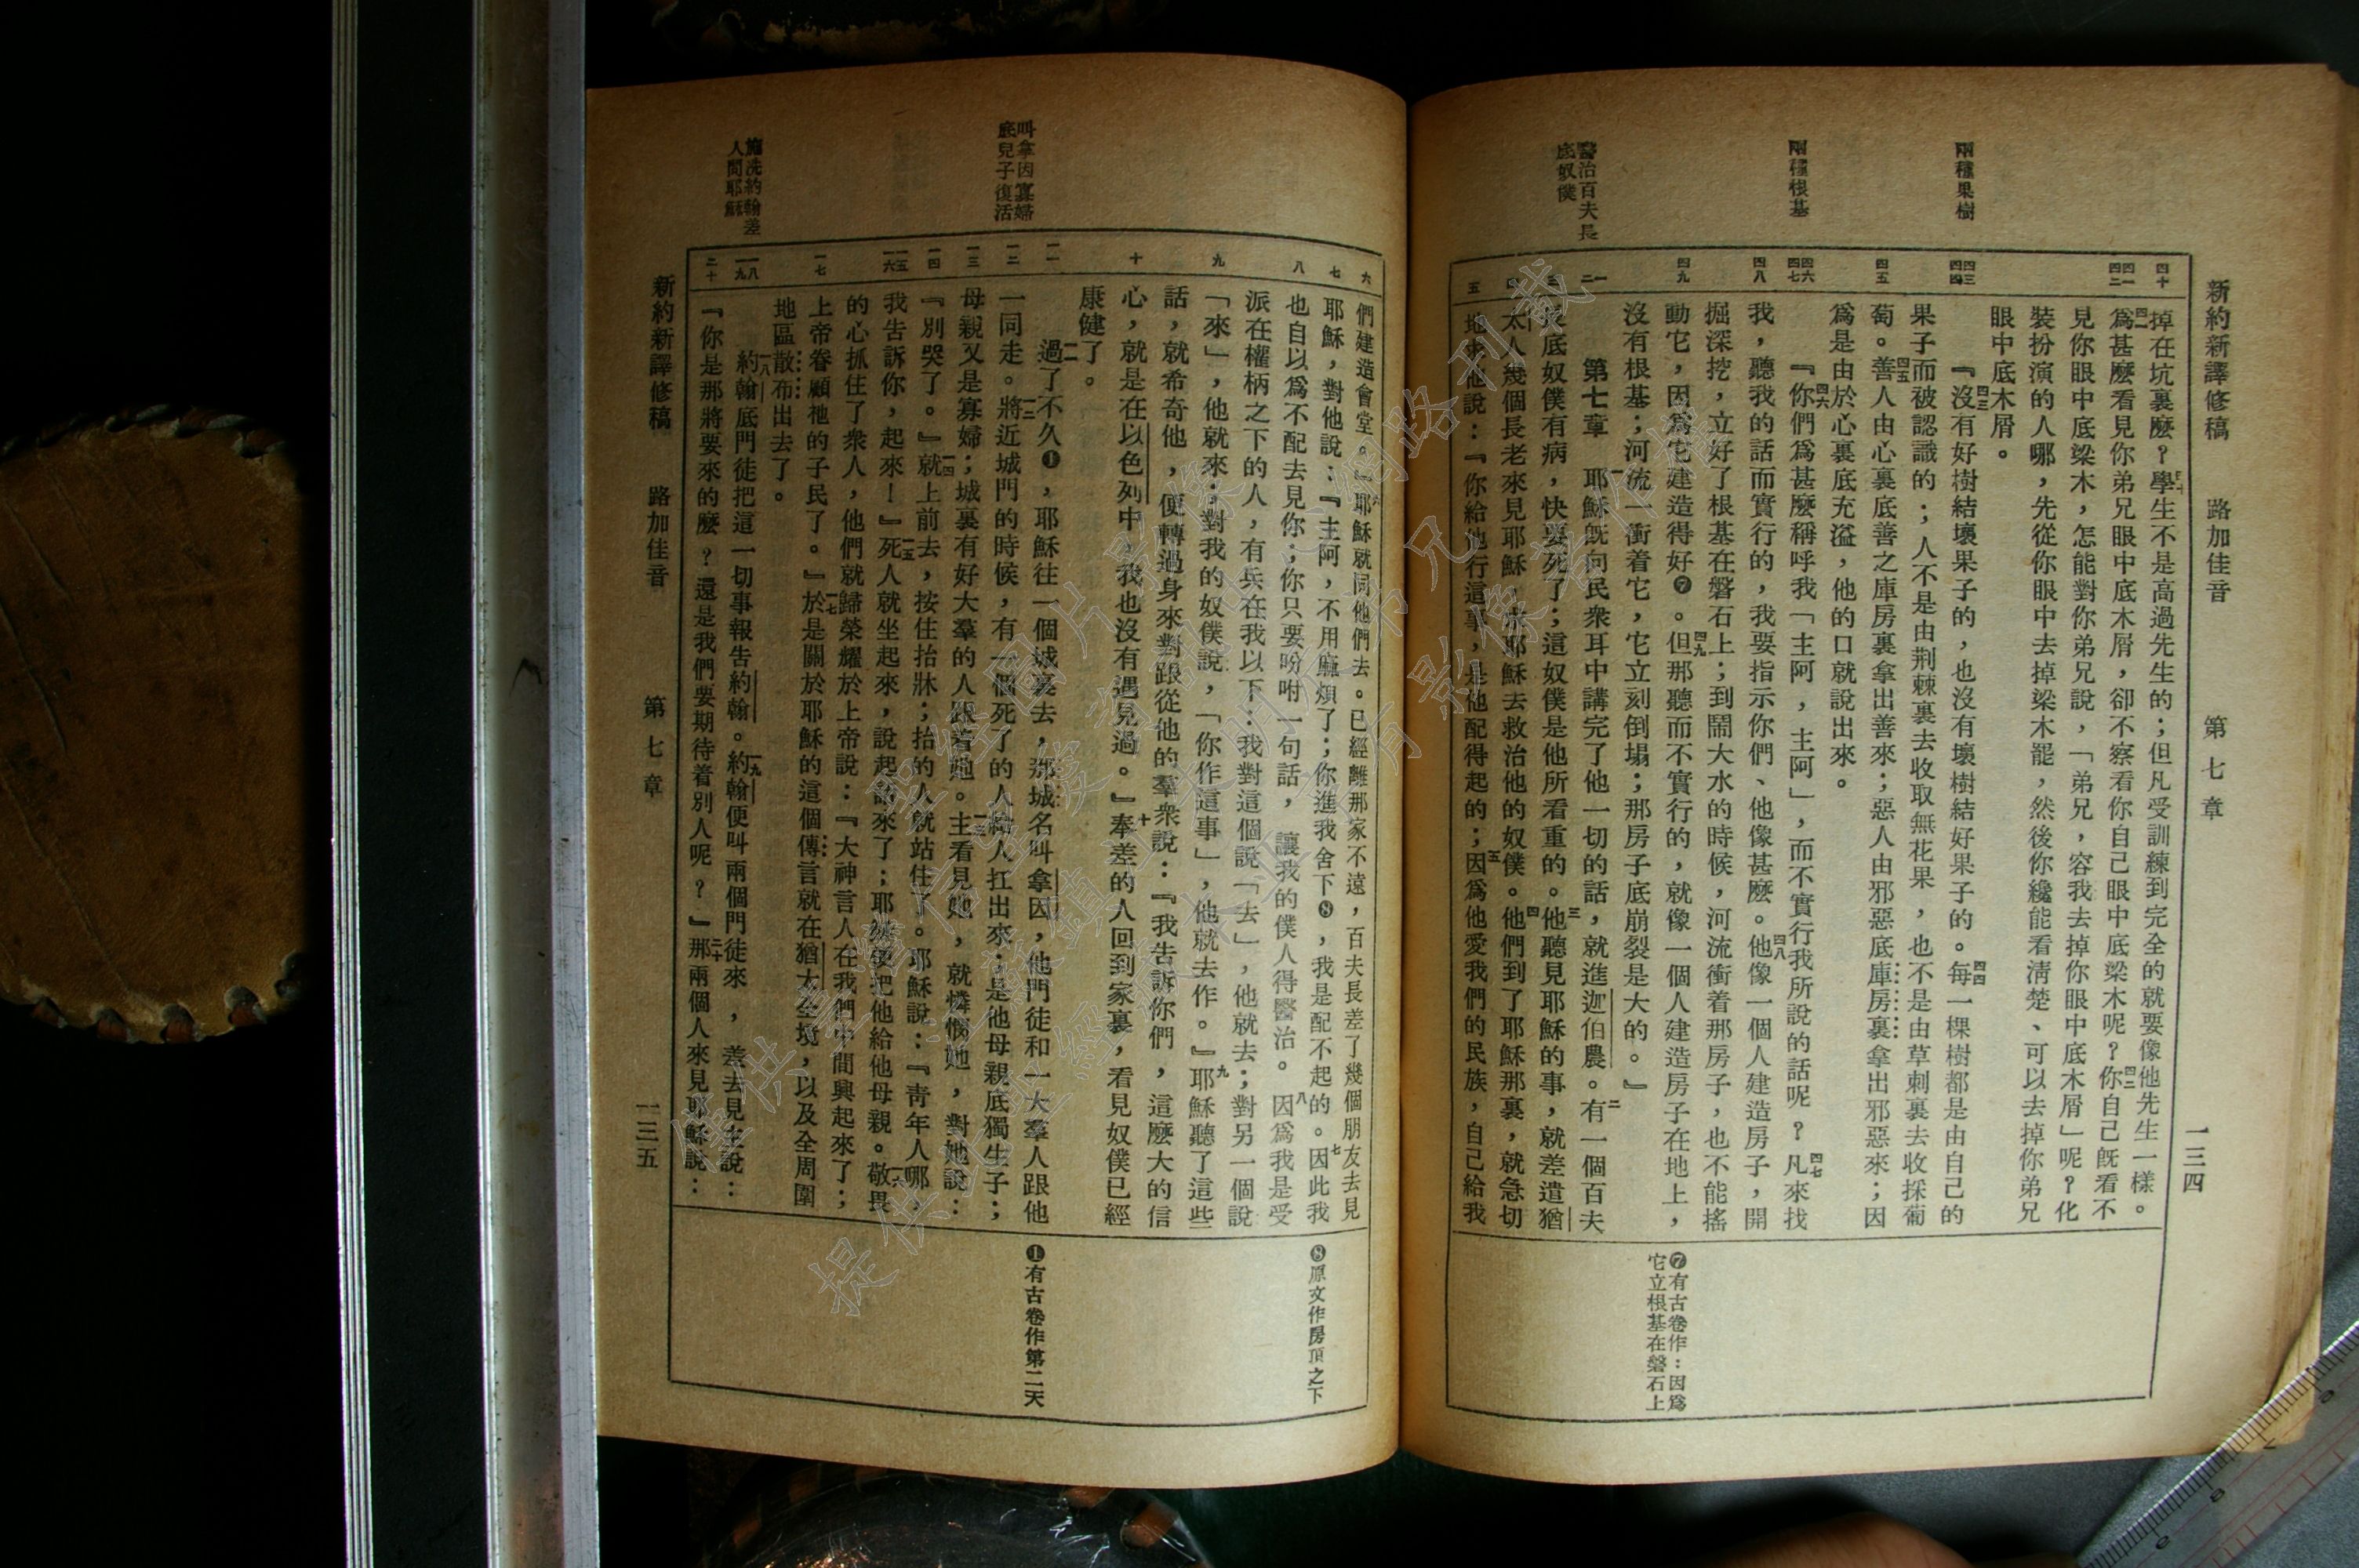 新約新譯修稿　路加佳音　第七章　一三四
兩種果樹
兩種根基
醫治百夫長
底奴僕
四十
四一
四二
四三
四四
四五
四六
四七
四八
四九
一
二
三
五
掉在坑裏麼？四十學生不是高過先生的；但凡受訓練到完全的就要像他先生一樣。
四一爲甚麼看見你弟兄眼中底木屑，卻不察看你自己眼中底梁木呢？四二你自己既看不
見你眼中底梁木，怎能對你弟兄說，「弟兄，容我去掉你眼中底木屑」呢？化
裝扮演的人哪，先從你眼中去掉梁木罷，然後你纔能看清楚、可以去掉你弟兄
眼中底木屑。
『四三沒有好樹結壞果子的，也沒有壞樹結好果子的。四四每一棵樹都是由自己的
果子而被認識的；人不是由荆棘裏去收取無花果，也不是由草刺裏去收採葡
萄。四五善人由心裏底善之庫房裏拿出善來；惡人由邪惡底庫房裏拿出邪惡來；因
爲是由於心裏底充溢，他的口就說出來。
『四六你們爲甚麼稱呼我「主阿，主阿」，而不實行我所說的話呢？四七凡來找
我，聽我的話而實行的，我要指示你們、他像甚麼。四八他像一個人建造房子，開
掘深挖，立好了根基在磐石上；到鬧大水的時候，河流衝着那房子，也不能搖
動它，因爲它建造得好❼。四九但那聽而不實行的，就像一個人建造房子在地上，
沒有根基；河流一衝着它，它立刻倒塌；那房子底崩裂是大的。』
第七章　一耶穌既向民衆耳中講完了他一切的話，就進迦伯農。二有一個百夫
長底奴僕有病，快要死了；這奴僕是他所看重的。三他聽見耶穌的事，就差遣猶
太人幾個長老來見耶穌，求耶穌去救治他的奴僕。四他們到了耶穌那裏，就急切
地求他說：『你給他行這事，是他配得起的；五因爲他愛我們的民族，自己給我
❼有古卷作：因爲
它立根基在磐石上
六
七
八
九
十
一一
一二
一三
一四
一五
一六
一七
一八
一九
二十
叫拿因寡婦
底兒子復活
施洗約翰差
人問耶穌
們建造會堂。』六耶穌就同他們去。已經離那家不遠，百夫長差了幾個朋友去見
耶穌，對他說：『主阿，不用麻煩了；你進我舍下❽，我是配不起的。七因此我
也自以爲不配去見你；你只要吩咐一句話，讓我的僕人得醫治。八因爲我是受
派在權柄之下的人，有兵在我以下：我對這個說「去」，他就去；對另一個說
「來」，他就來；對我的奴僕說，「你作這事」，他就去作。』九耶穌聽了這些
話，就希奇他，便轉過身來對跟從他的羣衆說：『我告訴你們，這麼大的信
心，就是在以色列中，我也沒有遇見過。』十奉差的人回到家裏，看見奴僕已經
康健了。
一一過了不久❶，耶穌往一個城裏去，那城名叫拿因，他門徒和一大羣人跟他
一同走。一二將近城門的時候，有一個死了的人給人扛出來；是他母親底獨生子；
母親又是寡婦；城裏有好大羣的人跟着她。一三主看見她，就憐憫她，對她說：
『別哭了。』一四就上前去，按住抬牀；抬的人就站住了。耶穌說：『靑年人哪，
我告訴你，起來！』一五死人就坐起來，說起話來了；耶穌便把他給他母親。一六敬畏
的心抓住了衆人，他們就歸榮耀於上帝說：『大神言人在我們中間興起來了；
上帝眷顧祂的子民了。』一七於是關於耶穌的這個傳言就在猶太全境，以及全周圍
地區散布出去了。
一八約翰底門徒把這一切事報告約翰。一九約翰便叫兩個門徒來，差去見主說：
『你是那將要來的麼？還是我們要期待着別人呢？』二十那兩個人來見耶穌說：
❽原文作房頂之下
❶有古卷作第二天
新約新譯修稿　路加佳音　第七章　一三五